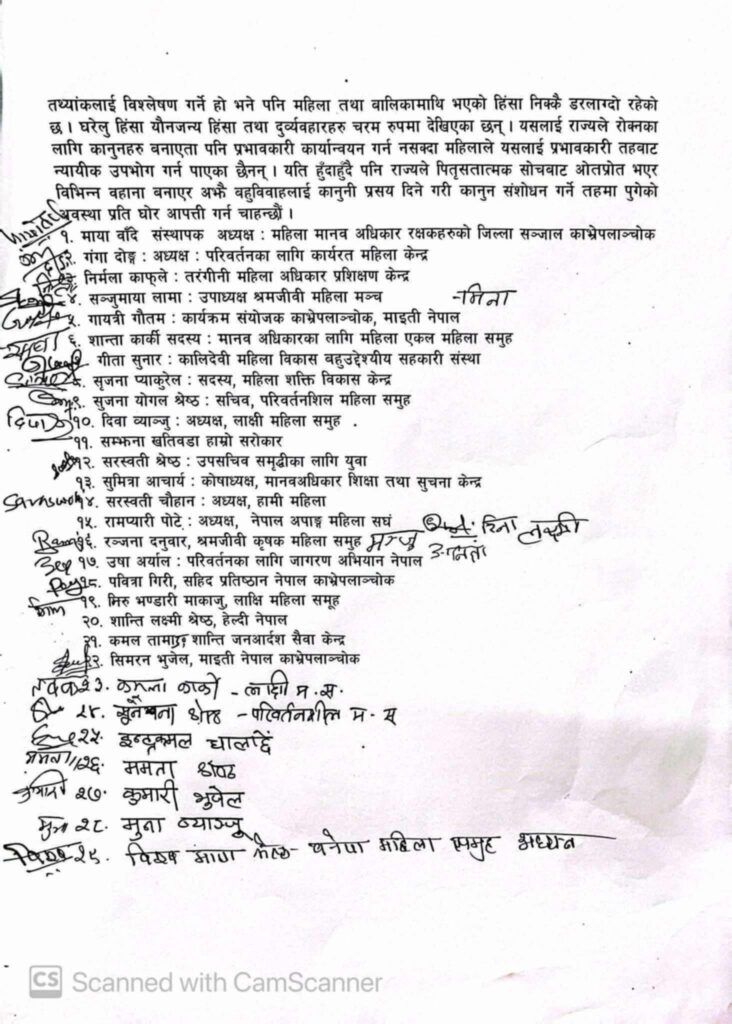 तथ्यांकलाई विश्लेषण गर्ने हो भने पनि महिला तथा वालिकामाथि भएको हिंसा निक्कै डरलाग्दो रहेको
छ । घरेलु हिंसा यौनजन्य हिंसा तथा दुर्व्यवहारहरु चरम रुपमा देखिएका छन् । यसलाई राज्यले रोक्नका
लागि कानुनहरु बनाएता पनि प्रभावकारी कार्यान्वयन गर्न नसक्दा महिलाले यसलाई प्रभावकारी तहवाट
न्यायीक उपभोग गर्न पाएका छैनन् । यति हुँदाहुँदै पनि राज्यले पितृसतात्मक सोचबाट ओतप्रोत भएर
विभिन्न वहाना बनाएर अझै बहुविवाहलाई कानुनी प्रसय दिने गरी कानुन संशोधन गर्ने तहमा पुगेको
अवस्था प्रति घोर आपत्ती गर्न चाहन्छौं ।
१. माया वाँदे संस्थापक अध्यक्ष : महिला मानव अधिकार रक्षकहरुको जिल्ला सञ्जाल काभ्रेपलाञ्चोक
२. गंगा दोङ्ग : अध्यक्ष : परिवर्तनका लागि कार्यरत महिला केन्द्र
३. निर्मला काफ्ले : तरंगीनी महिला अधिकार प्रशिक्षण केन्द्र
४. सञ्जुमाया लामा : उपाध्यक्ष श्रमजीवी महिला मञ्च -मिना
५. गायत्री गौतम : कार्यक्रम संयोजक काभ्रेपलाञ्चोक, माइती नेपाल
६. शान्ता कार्की सदस्य : मानव अधिकारका लागि महिला एकल महिला समुह
गीता सुनार : कालिदेवी महिला विकास वहुउद्देश्यीय सहकारी संस्था
८. सृजना प्याकुरेल : सदस्य, महिला शक्ति विकास केन्द्र
९. सुजना योगल श्रेष्ठ : सचिव, परिवर्तनशिल महिला समुह
१०. दिवा व्याञ्जु : अध्यक्ष, लाक्षी महिला समुह .
११. सम्झना खतिवडा हाम्रो सरोकार
१२. सरस्वती श्रेष्ठ : उपसचिव समृद्धीका लागि युवा
१३. सुमित्रा आचार्य : कोषाध्यक्ष, मानवअधिकार शिक्षा तथा सुचना केन्द्र
१४. सरस्वती चौहान : अध्यक्ष, हामी महिला
१५. रामप्यारी पोटे : अध्यक्ष, नेपाल अपाङ्ग महिला सघं
१६. रञ्जना दनुवार, श्रमजीवी कृषक महिला समुह
१७. उषा अर्याल : परिवर्तनका लागि जागरण अभियान नेपाल
१८. पवित्रा गिरी, सहिद प्रतिष्ठान नेपाल काभ्रेपलाञ्चोक
१९. मिरु भण्डारी माकाजु, लाक्षि महिला समूह
२०. शान्ति लक्ष्मी श्रेष्ठ, हेल्दी नेपाल
२१. कमल तामाङ्ग शान्ति जनआर्दश सेवा केन्द्र
२२. सिमरन भुजेल, माइती नेपाल काभ्रेपलाञ्चोक
२३. कमला कार्की - लाक्षी म. स.
२४. श्रेष्ठ - परिवर्तनशील म. स
२५. इन्द्रकमल
२६. ममता श्रेष्ठ
२७. कुमारी भुजेल
२८. मुना व्याञ्जु
२९. महिला समुह
CS Scanned with CamScanner